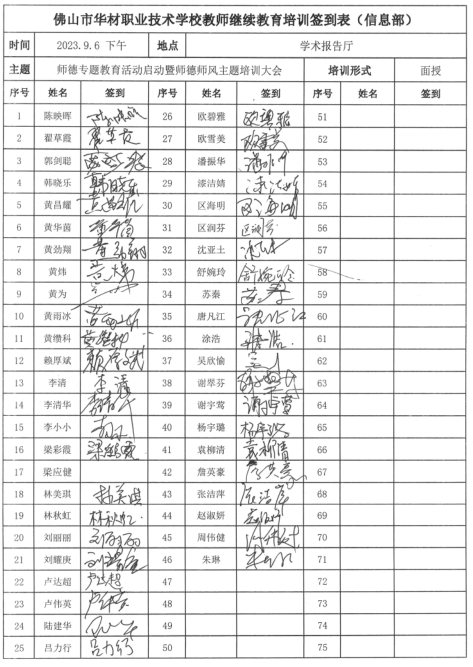 佛山市华材职业技术学校教师继续教育培训签到表（信息部）
时间 2023.9.6 下午 地点 学术报告厅
主题 师德专题教育活动启动暨师德师风主题培训大会 培训形式 面授
序号 姓名 签到 序号 姓名 签到 序号 姓名 签到
1 陈映晖 26 欧碧雅 欧碧雅 51
2 翟草霞 翟草霞 27 欧雪美 52
3 郭剑聪 28 潘振华 53
4 韩晓乐 韩晓乐 29 漆洁婧 54
5 黄昌耀 30 区海明 区海明 55
6 黄华茵 31 区润芬 区润芬 56
7 黄劲翔 黄劲翔 32 沈亚土 57
8 黄炜 33 舒婉玲 舒婉玲 58
9 黄为 34 苏秦 苏秦 59
10 黄雨冰 35 唐凡江 60
11 黄缵科 36 涂浩 涂浩 61
12 赖厚斌 37 吴欣愉 62
13 李清 李清 38 谢举芬 63
14 李清华 39 谢宇莺 谢宇莺 64
15 李小小 40 杨宇璐 65
16 梁彩霞 梁彩霞 41 袁柳清 袁柳清 66
17 梁应健 42 詹英豪 67
18 林美琪 林美琪 43 张洁萍 68
19 林秋虹 林秋虹 44 赵淑妍 69
20 刘丽丽 刘丽丽 45 周伟健 70
21 刘耀庚 46 朱琳 71
22 卢达超 卢达超 47 72
23 卢伟英 48 73
24 陆建华 49 74
25 吕力行 吕力行 50 75